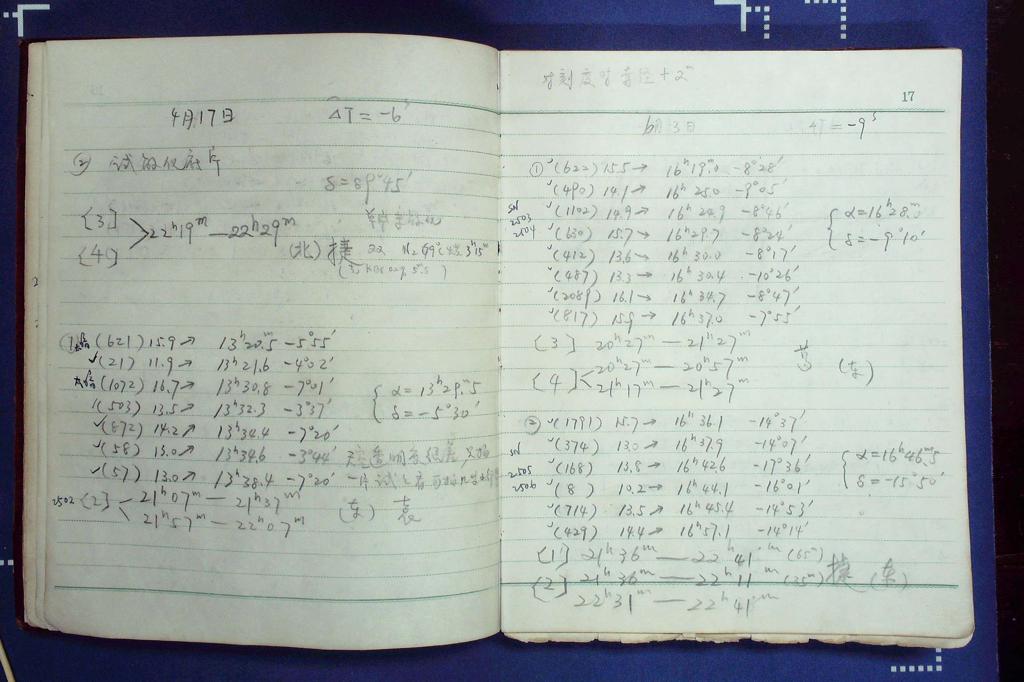 4月17日 ΔT = -6ˢ
② 试验仪底片
δ = 89°45'
[3]
22ʰ19ᵐ — 22ʰ29ᵐ
[4] (北) 捷
① (621) 15.9 → 13ʰ20.5ᵐ -5°55'
√(21) 11.9 → 13ʰ21.6 -4°02'
(1072) 16.7 → 13ʰ30.8 -7°01'
{ α = 13ʰ29ᵐ.5
√(503) 13.5 → 13ʰ32.3 -3°37'
{ δ = -5°30'
√(872) 14.2 → 13ʰ34.4 -7°20'
√(58) 13.0 → 13ʰ34.6 -3°44'
√(57) 13.0 → 13ʰ38.4 -7°20'
2502 [2] 21ʰ07ᵐ — 21ʰ37ᵐ
21ʰ57ᵐ — 22ʰ07ᵐ (东) 袁
2
+2ᵐ
17
6月3日 ΔT = -9ˢ
① √(622) 15.5 → 16ʰ19ᵐ.0 -8°28'
√(490) 14.1 → 16ʰ25.0 -9°05'
SN
√(1102) 14.9 → 16ʰ29.9 -8°46'
{ α = 16ʰ28ᵐ
2503
2504
√(630) 15.7 → 16ʰ29.7 -8°24'
{ δ = -9°10'
√(412) 13.6 → 16ʰ30.0 -8°17'
√(487) 13.3 → 16ʰ30.4 -10°26'
√(2089) 16.1 → 16ʰ34.7 -8°47'
√(817) 15.9 → 16ʰ37.0 -7°55'
[3] 20ʰ27ᵐ — 21ʰ27ᵐ
[4] 20ʰ27ᵐ — 20ʰ57ᵐ
21ʰ17ᵐ — 21ʰ27ᵐ (东)
② √(1791) 15.7 → 16ʰ36.1 -14°37'
√(374) 13.0 → 16ʰ37.9 -14°07'
SN
2505
√(168) 13.8 → 16ʰ42.6 -17°36'
{ α = 16ʰ46ᵐ.5
2506
√(8) 10.2 → 16ʰ44.1 -16°01'
{ δ = -15°50'
√(714) 13.5 → 16ʰ45.4 -14°53'
√(429) 14.4 → 16ʰ57.1 -14°14'
[1] 21ʰ36ᵐ — 22ʰ41ᵐ (65ᵐ)
[2] 21ʰ36ᵐ — 22ʰ11ᵐ (35ᵐ) 捷 (东)
22ʰ31ᵐ — 22ʰ41ᵐ